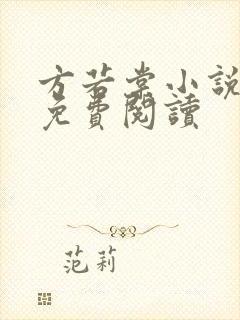 方若棠小說
免費閱讀
范莉